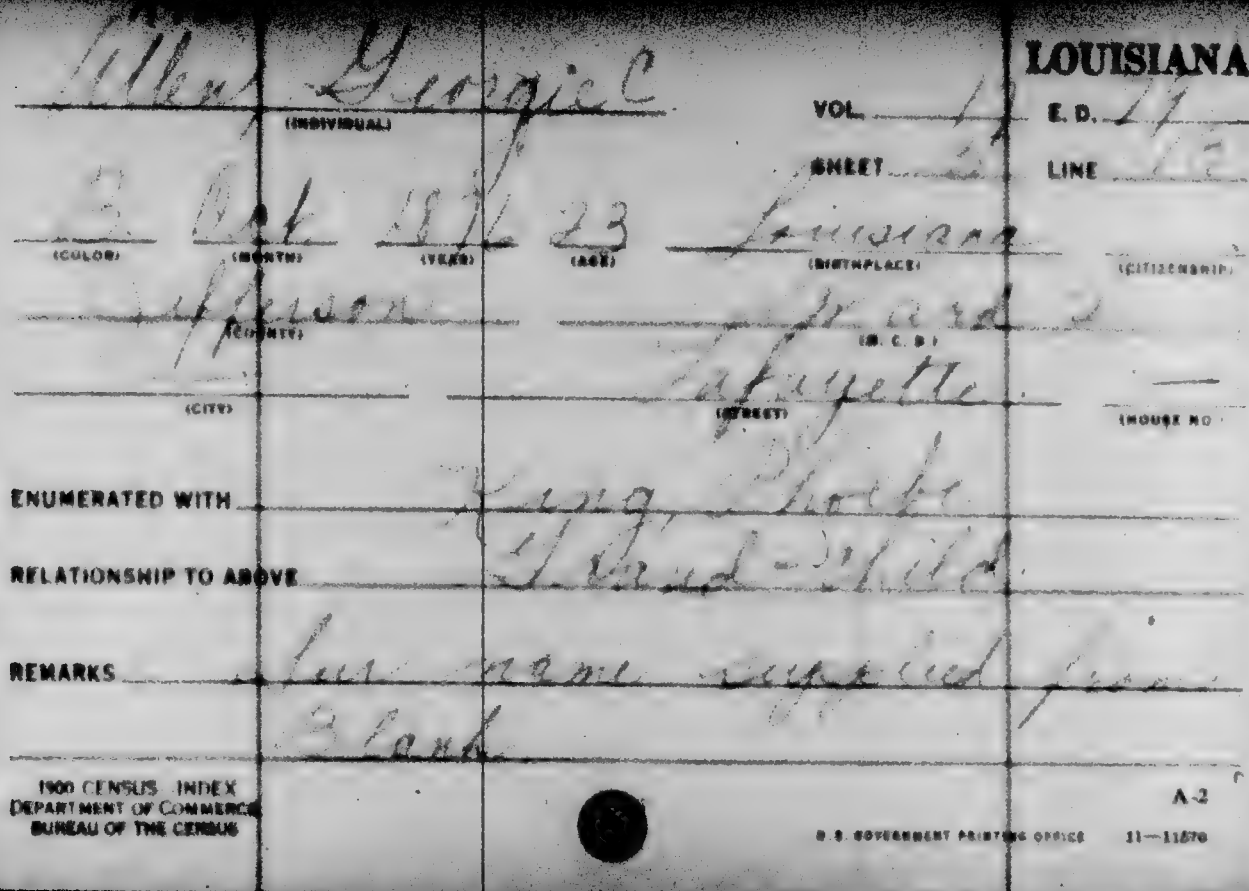 LOUISIANA
Allen, Georgie C
(INDIVIDUAL)
VOL. 19 E. D. 29
SHEET 5 LINE
B Oct 1876 23 Louisiana
(COLOR) (MONTH) (YEAR) (AGE) (BIRTHPLACE) (CITIZENSHIP)
Jefferson Ward 2
(COUNTY) (M. C. D.)
— Lafayette —
(CITY) (STREET) (HOUSE NO.)
ENUMERATED WITH King, Phoebe
RELATIONSHIP TO ABOVE Grand-Child
REMARKS Sur name supplied from
Blank
1900 CENSUS INDEX
DEPARTMENT OF COMMERCE
BUREAU OF THE CENSUS
A-2
U. S. GOVERNMENT PRINTING OFFICE 11—11576